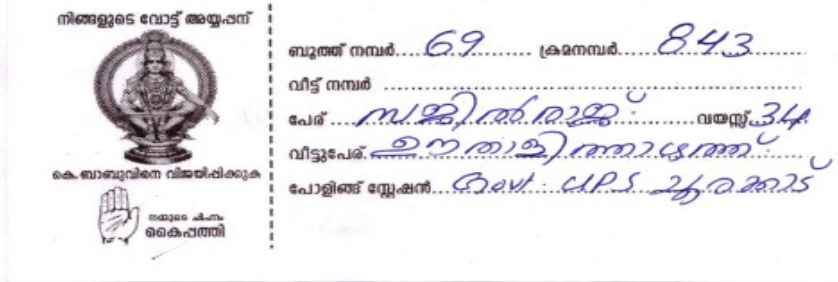 നിങ്ങളുടെ വോട്ട് അയ്യപ്പന്
കെ. ബാബുവിനെ വിജയിപ്പിക്കുക
നമ്മുടെ ചിഹ്നം
കൈപ്പത്തി
ബൂത്ത് നമ്പർ....69........ ക്രമനമ്പർ.....843........
വീട്ട് നമ്പർ ........................
പേര് ....സജിൽരാജ്..... വയസ്സ്..34
വീട്ടുപേര്
പോളിങ്ങ് സ്റ്റേഷൻ...Govt. UPS ചൂരക്കാട്